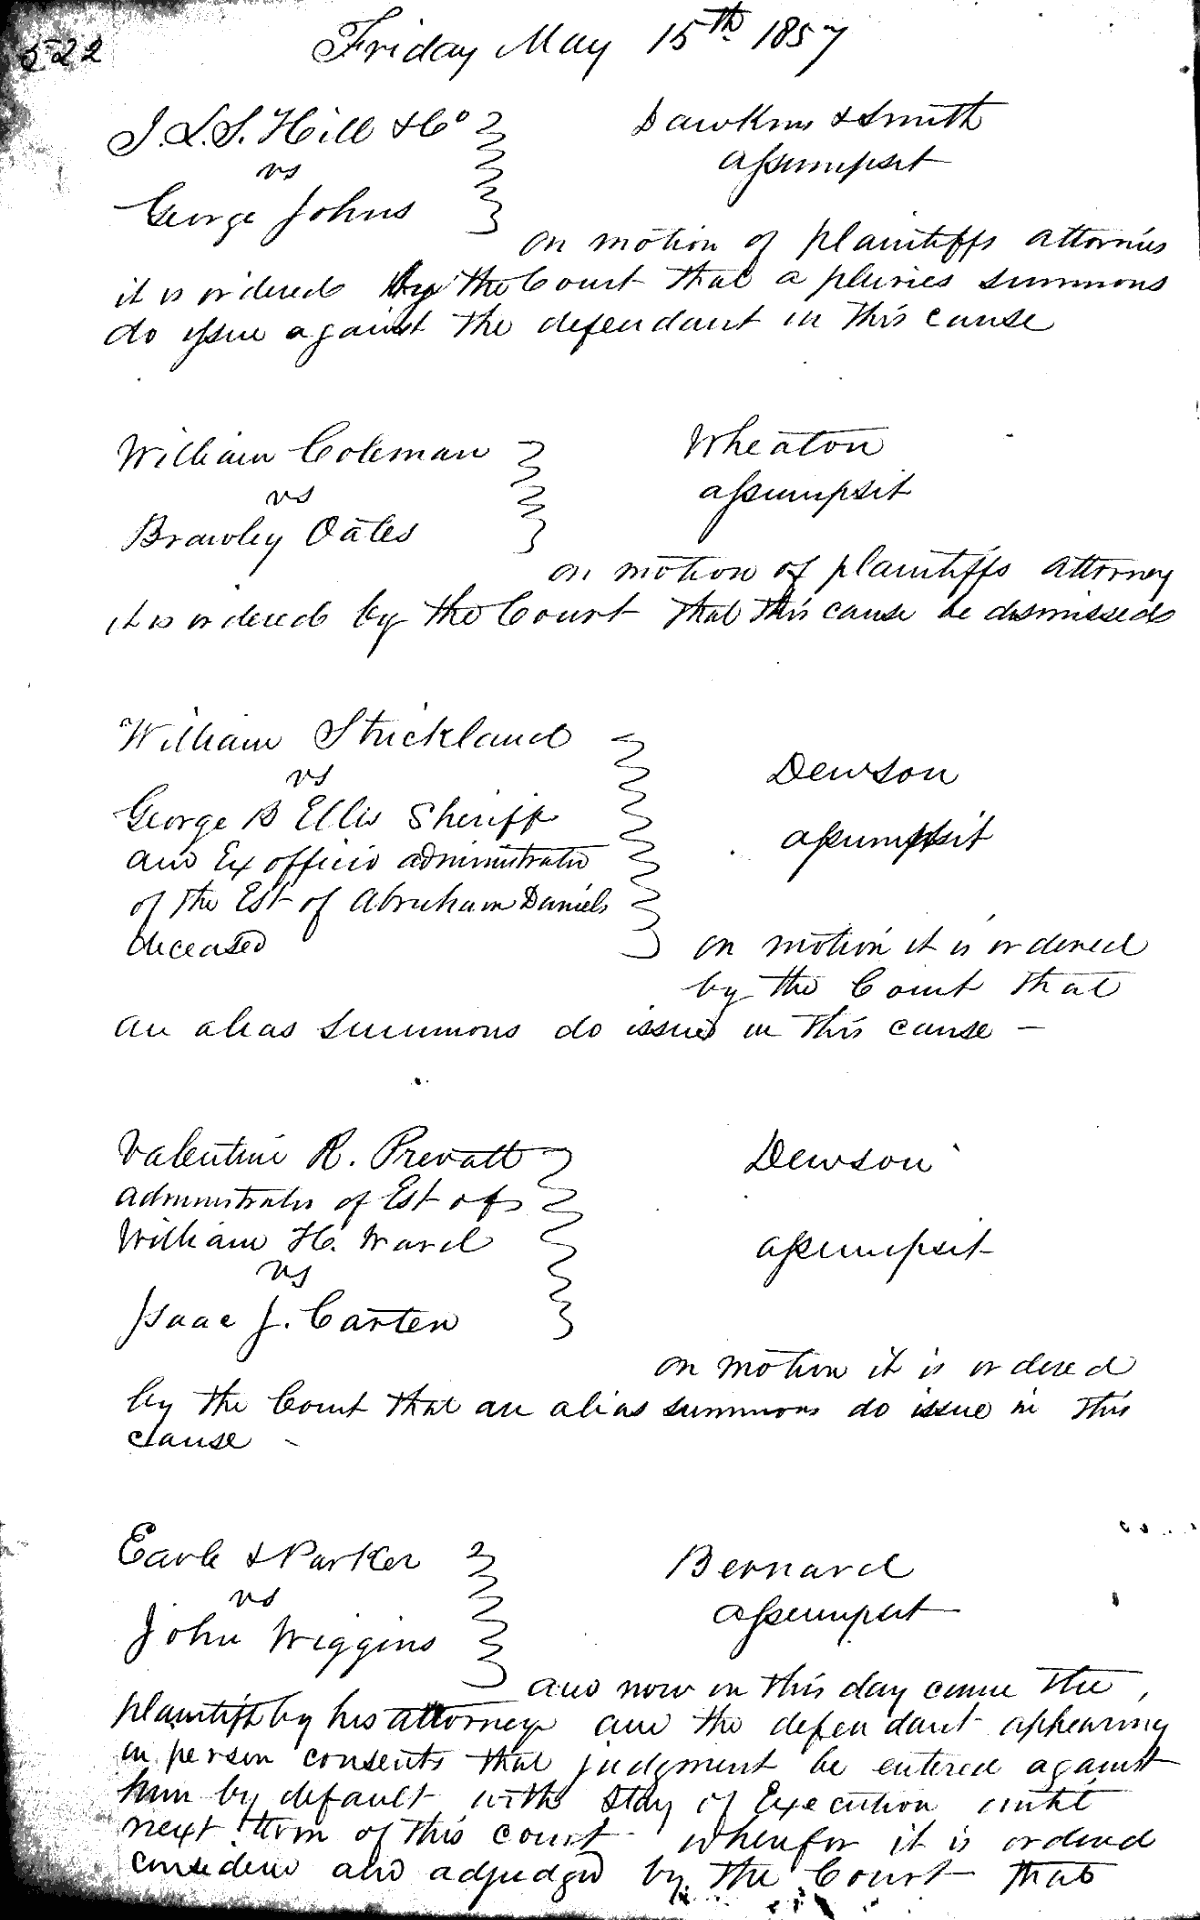 522
Friday May 15th 1857
J. L. S. Hill & Co
Dawkins & Smith
vs
assumpsit
George Johns
on motion of plaintiffs attornies
it is ordered by the Court that a pluries summons
do issue against the defendant in this cause
William Coleman
Wheaton
vs
assumpsit
Brawley Oates
on motion of plaintiffs attorney
it is ordered by the Court that this cause be dismissed
William Strickland
Dewson
vs
George B Ellis Sheriff
assumpsit
and Ex officio administrator
of the Est of Abraham Daniels
deceased
on motion it is ordered
by the Court that
an alias summons do issue in this cause —
Valentine R. Prevatt
Dewson
administrator of Est of
William H. Ward
assumpsit
vs
Isaac J. Carter
on motion it is ordered
by the Court that an alias summons do issue in this
cause -
Earle & Parker
Bernard
vs
assumpsit
John Wiggins
and now on this day came the
plaintiff by his attorney and the defendant appearing
in person consents that judgment be entered against
him by default with stay of Execution until
next term of this court wherefor it is ordered
considered and adjudged by the Court that